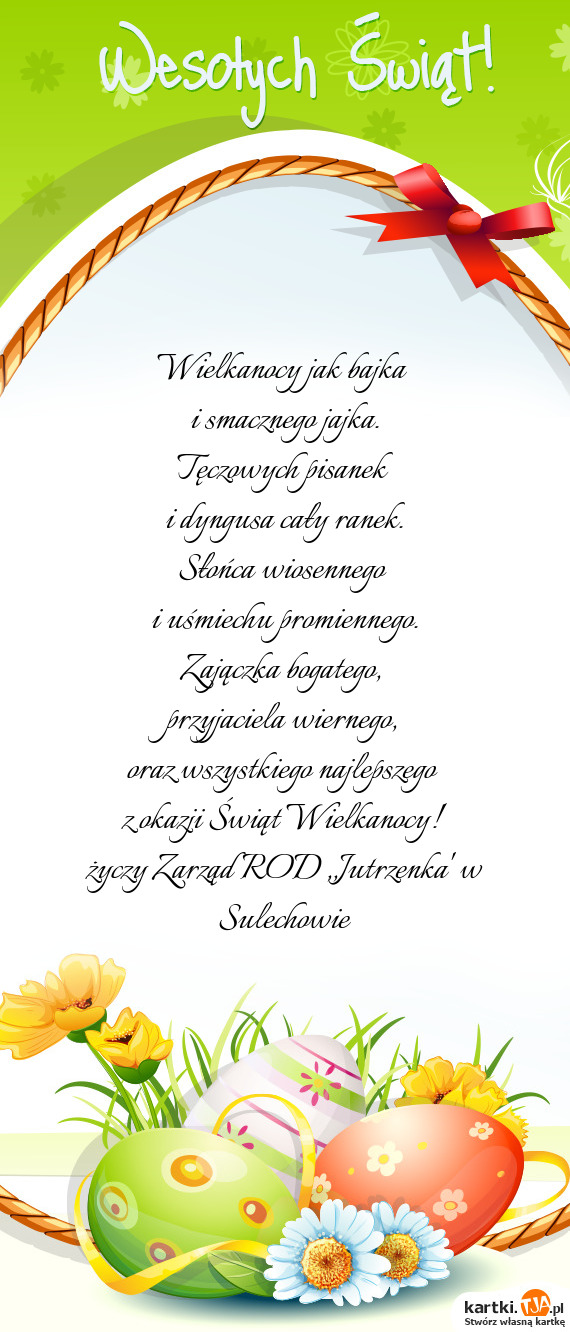 Wesołych Świąt!
Wielkanocy jak bajka
i smacznego jajka.
Tęczowych pisanek
i dyngusa cały ranek.
Słońca wiosennego
i uśmiechu promiennego.
Zajączka bogatego,
przyjaciela wiernego,
oraz wszystkiego najlepszego
z okazji Świąt Wielkanocy!
życzy Zarząd ROD ,,Jutrzenka' w
Sulechowie
kartki.TJA.pl
Stwórz własną kartkę